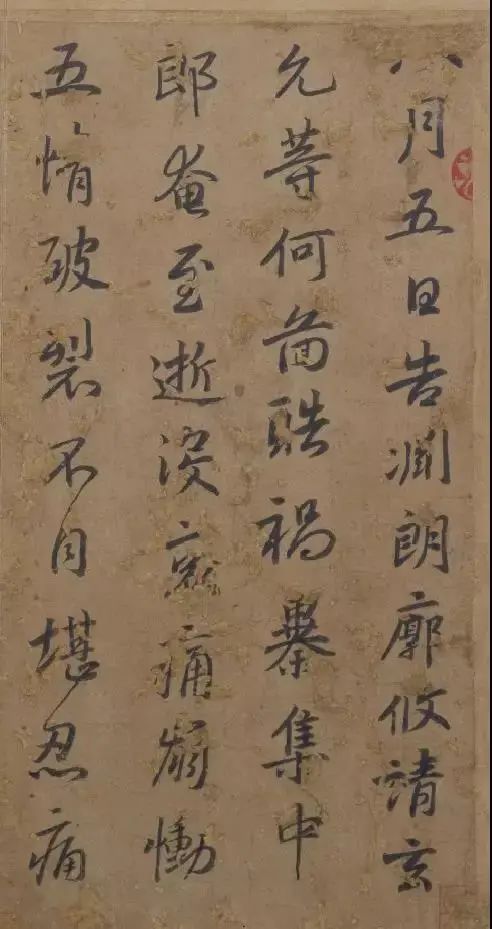 八月五日告淵朗廓攸靖玄
允等何圖酷禍暴集中
郎奄至逝没哀痛崩慟
五情破裂不自堪忍痛